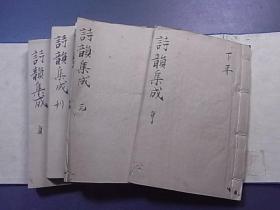 下平
詩韻集成 亨
詩韻集成 元
詩韻集成 利
詩韻集成